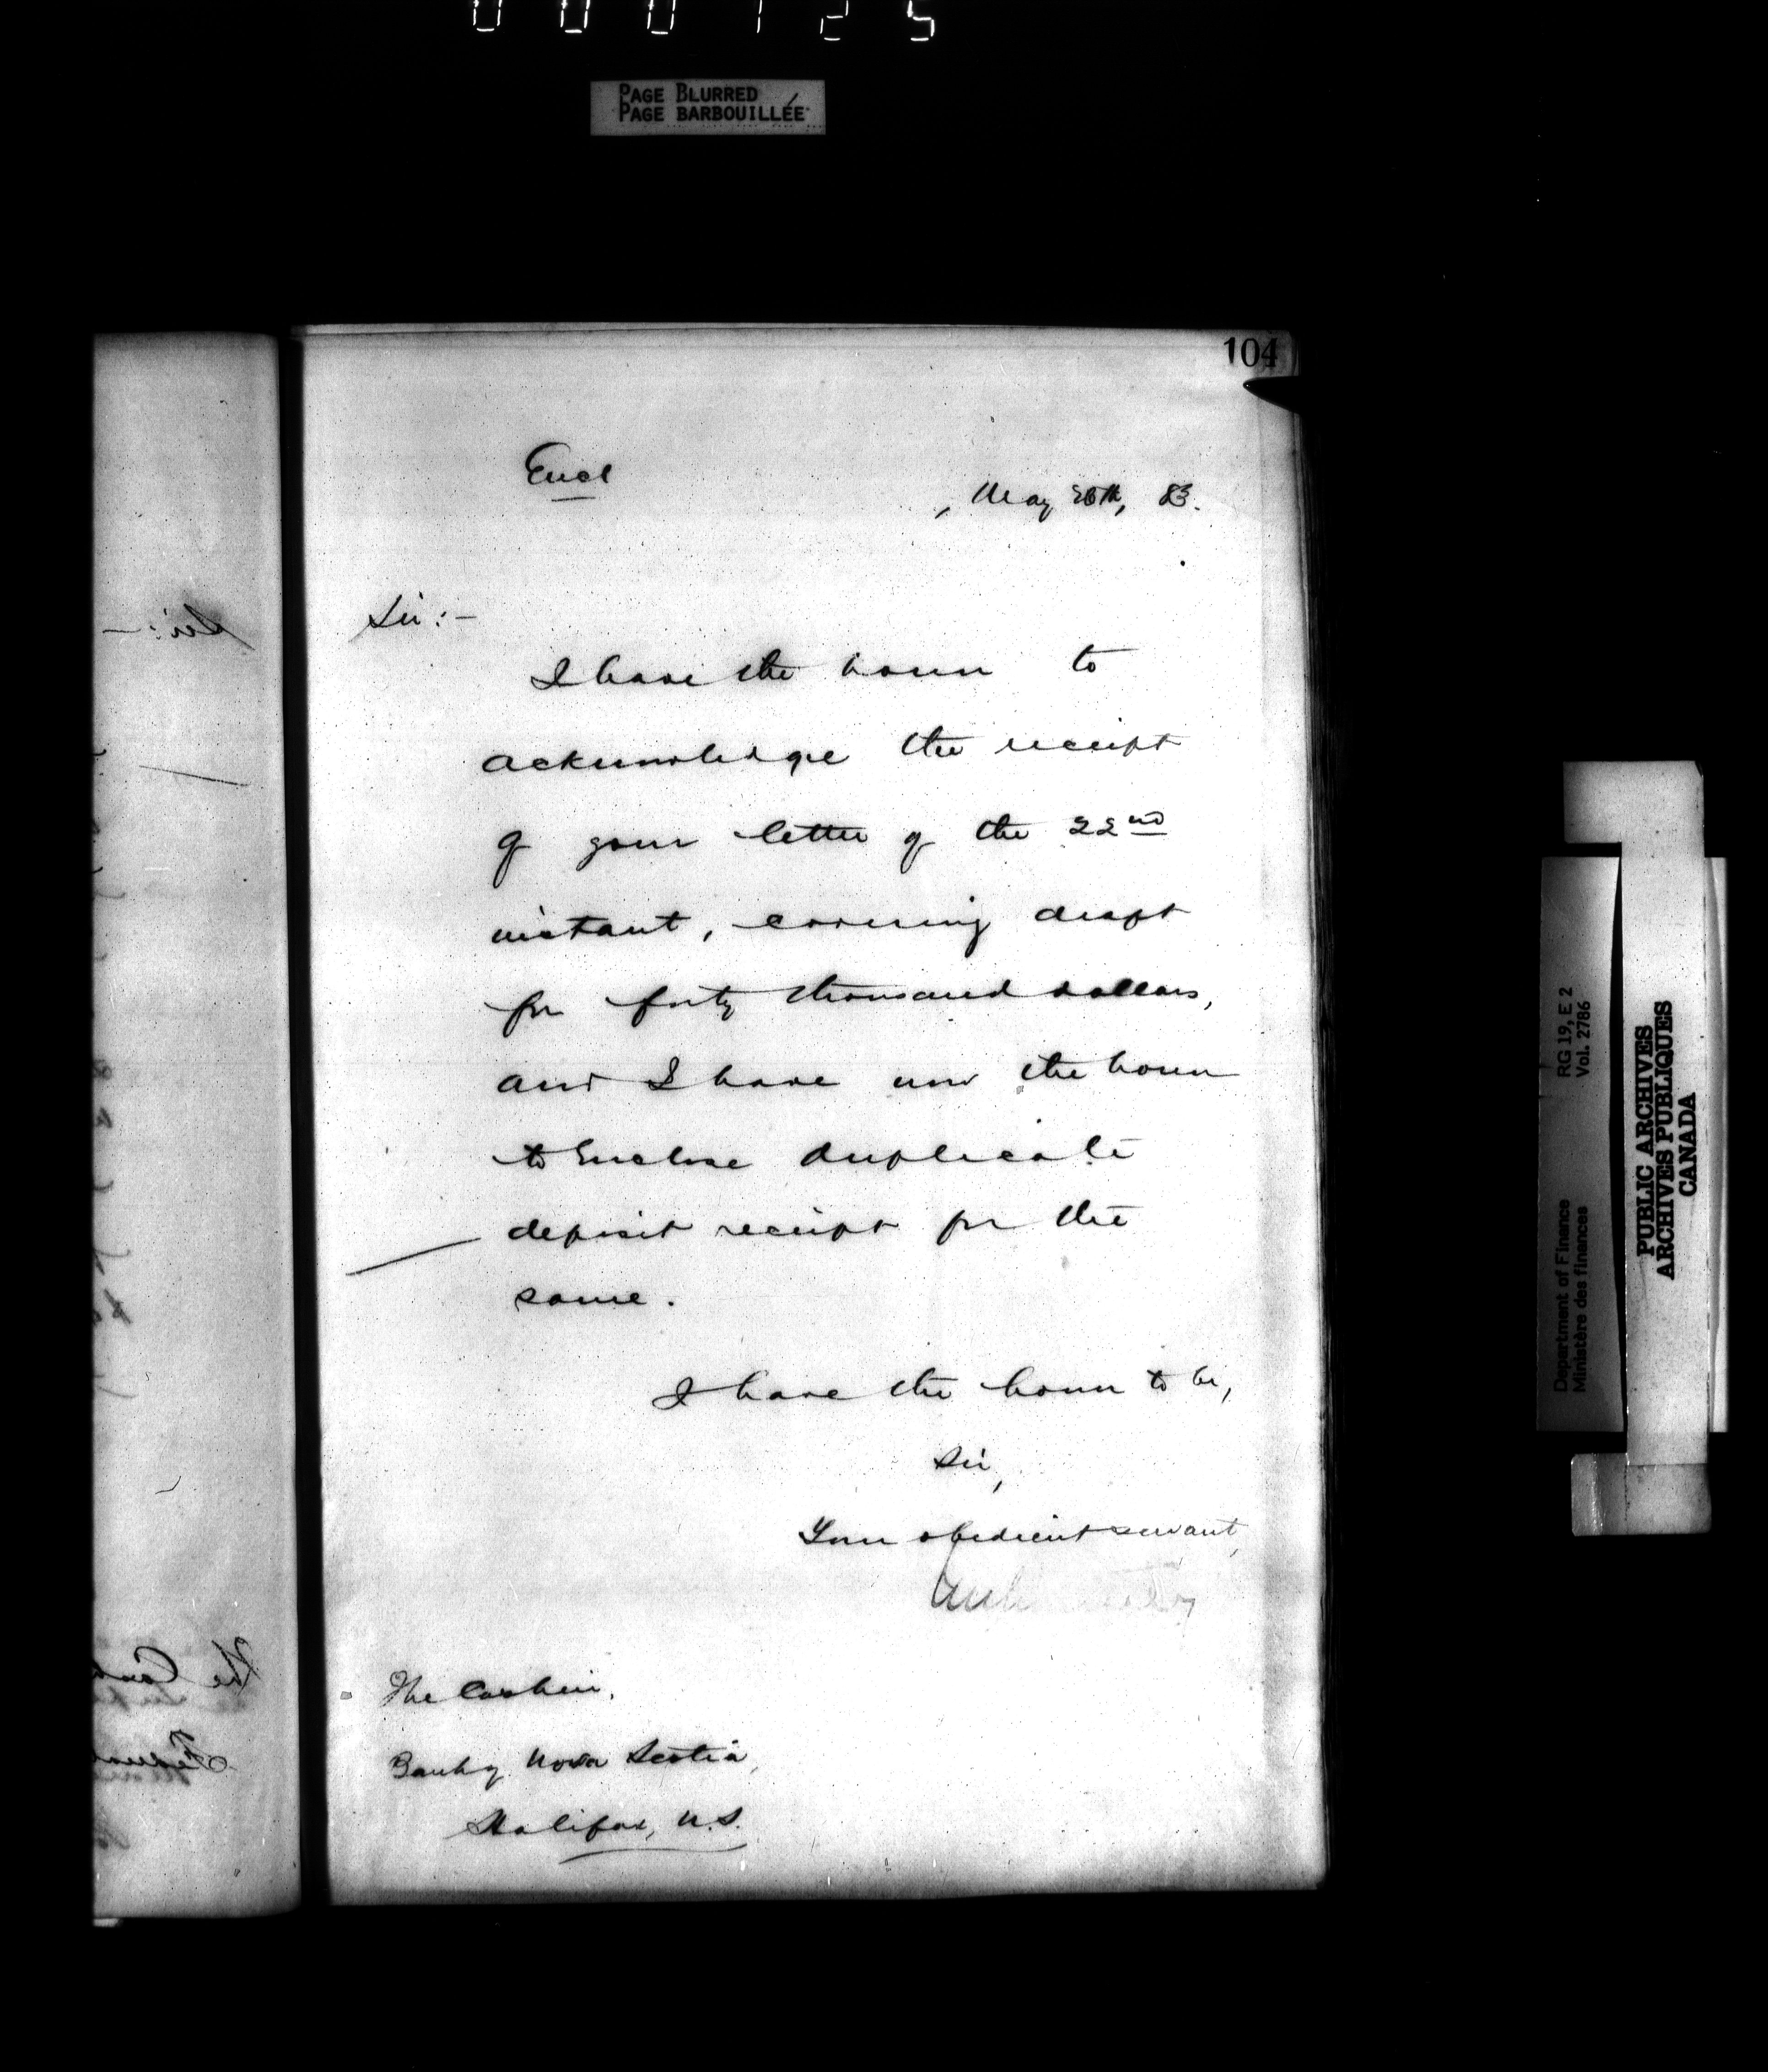 000125
PAGE BLURRED
PAGE BARBOUILLÉE
104
Encl
, May 26th, 83.
Sir:-
I have the honor to
acknowledge the receipt
of your letter of the 22nd
instant, covering draft
for forty thousand dollars,
and I have now the honor
to enclose duplicate
deposit receipt for the
same.
I have the honor to be,
Sir,
Your obedient servant,
The Cashier,
Bank of Nova Scotia,
Halifax, N.S.
Sir:-
The
RG 19, E 2
Vol. 2786
Department of Finance
Ministère des finances
PUBLIC ARCHIVES
ARCHIVES PUBLIQUES
CANADA